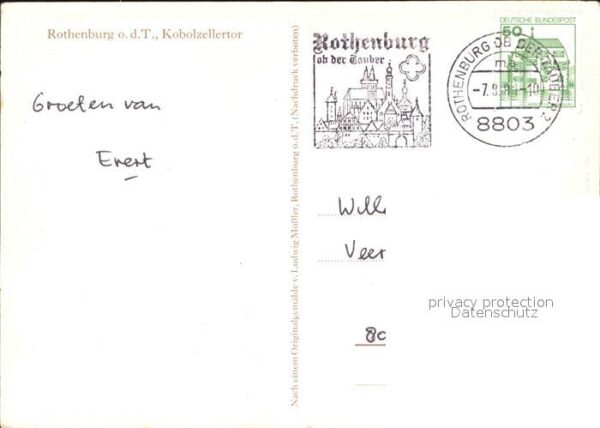 Rothenburg o.d.T., Kobolzellertor
Groeten van
Evert
Nach einem Originalgemälde v. Ludwig Mößler, Rothenburg o.d.T. (Nachdruck verboten)
Rothenburg
ob der Tauber
ROTHENBURG OB DER TAUBER 2
8803
DEUTSCHE BUNDESPOST
50
Will
Veer
8c
privacy protection
Datenschutz